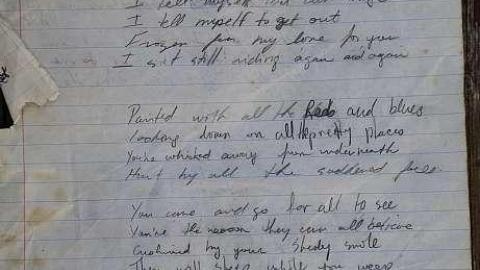 I tell myself
I tell myself to get out
Frozen from my love for you
I sit still riding again and again
Painted with all the Reds and blues
looking down on all the pretty places
You're whisked away from underneath
Hurt by all the
You come and go for all to see
You're the reason they can all believe
by your Shady smile
They will sleep while you weep